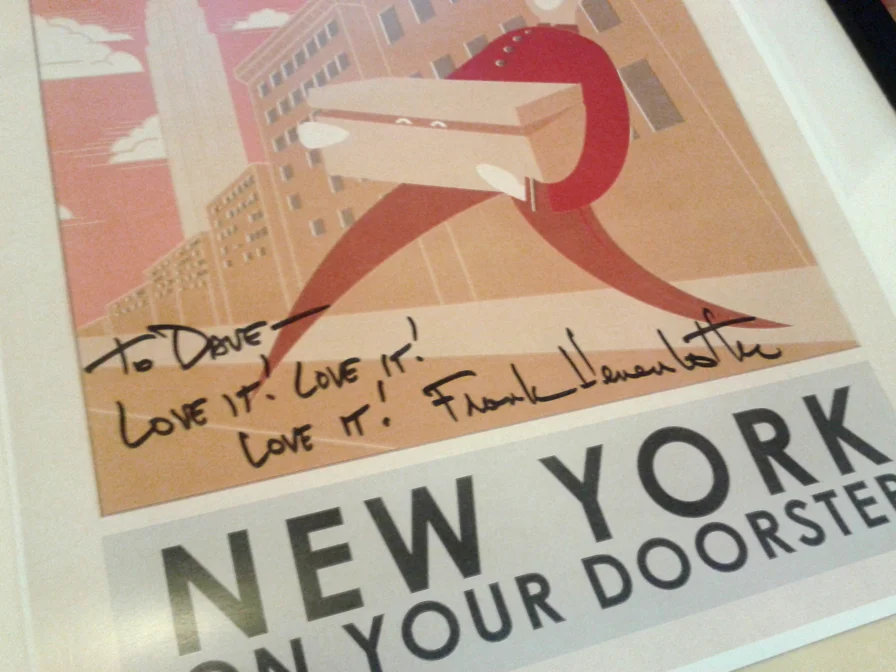 To DAVE—
LOVE IT! LOVE IT!
LOVE IT! Frank Henenlotter
NEW YORK
ON YOUR DOORSTEP